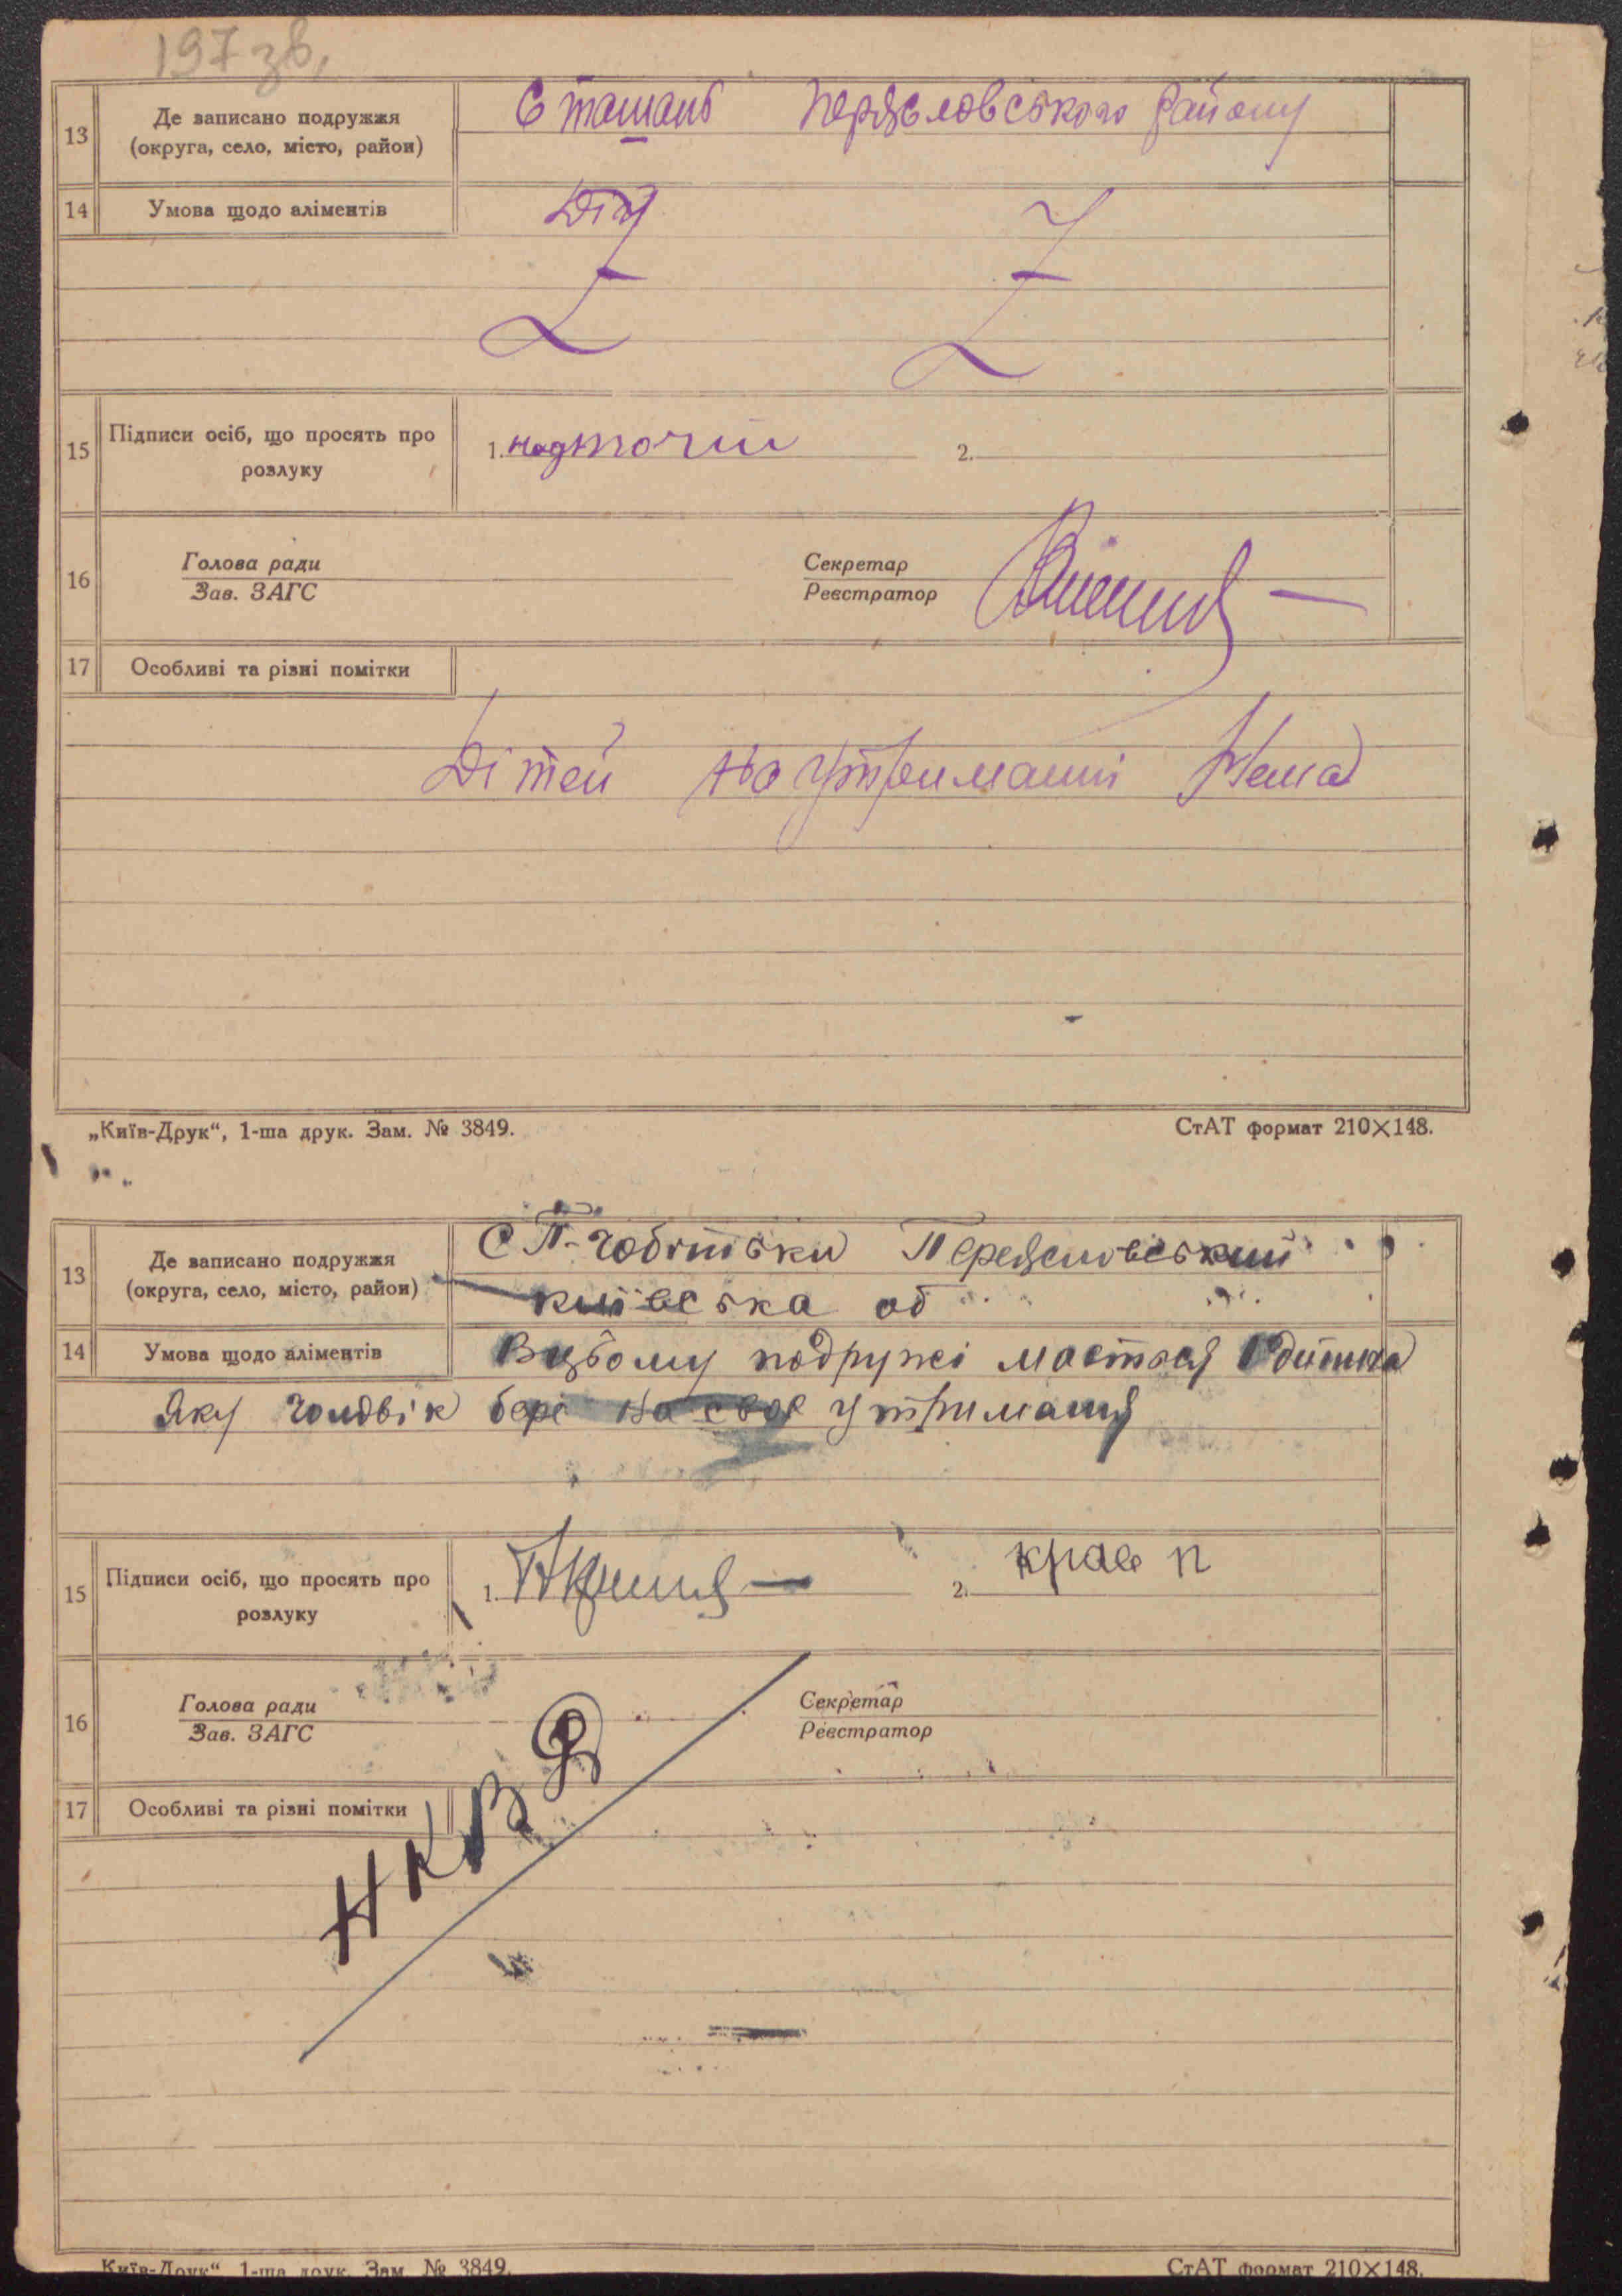 197 зв.
13 Де записано подружжя (округа, село, місто, район)
С ташань Переясловського району
14 Умова щодо аліментів
15 Підписи осіб, що просять про розлуку
1. надточий 2.
16 Голова ради Секретар
Зав. ЗАГС Реєстратор
17 Особливі та різні помітки
Дітей на утриманні Нема
„Київ-Друк“, 1-ша друк. Зам. № 3849. СтАТ формат 210×148.
13 Де записано подружжя (округа, село, місто, район)
С П-Чобітьки Переясловський
київська об
14 Умова щодо аліментів
Вцьому подружі мається 1 дитина
Яку чоловік бере на своє утримання
15 Підписи осіб, що просять про розлуку
1. 2. крав п
16 Голова ради Секретар
Зав. ЗАГС Реєстратор
НКВД
17 Особливі та різні помітки
Київ-Друк“, 1-ша друк. Зам. № 3849. СтАТ формат 210×148.